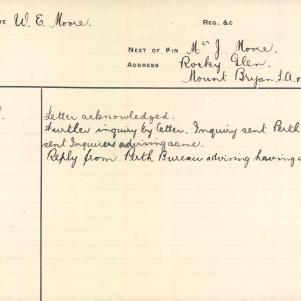 ME W. E. Moore. REG., &C
NEXT OF KIN Mrs J. Moore.
ADDRESS Rocky Glen.
Mount Bryan. S.A.
Letter acknowledged.
Further inquiry by letter. Inquiry sent Perth
sent Inquirer advising same.
Reply from Perth Bureau advising having